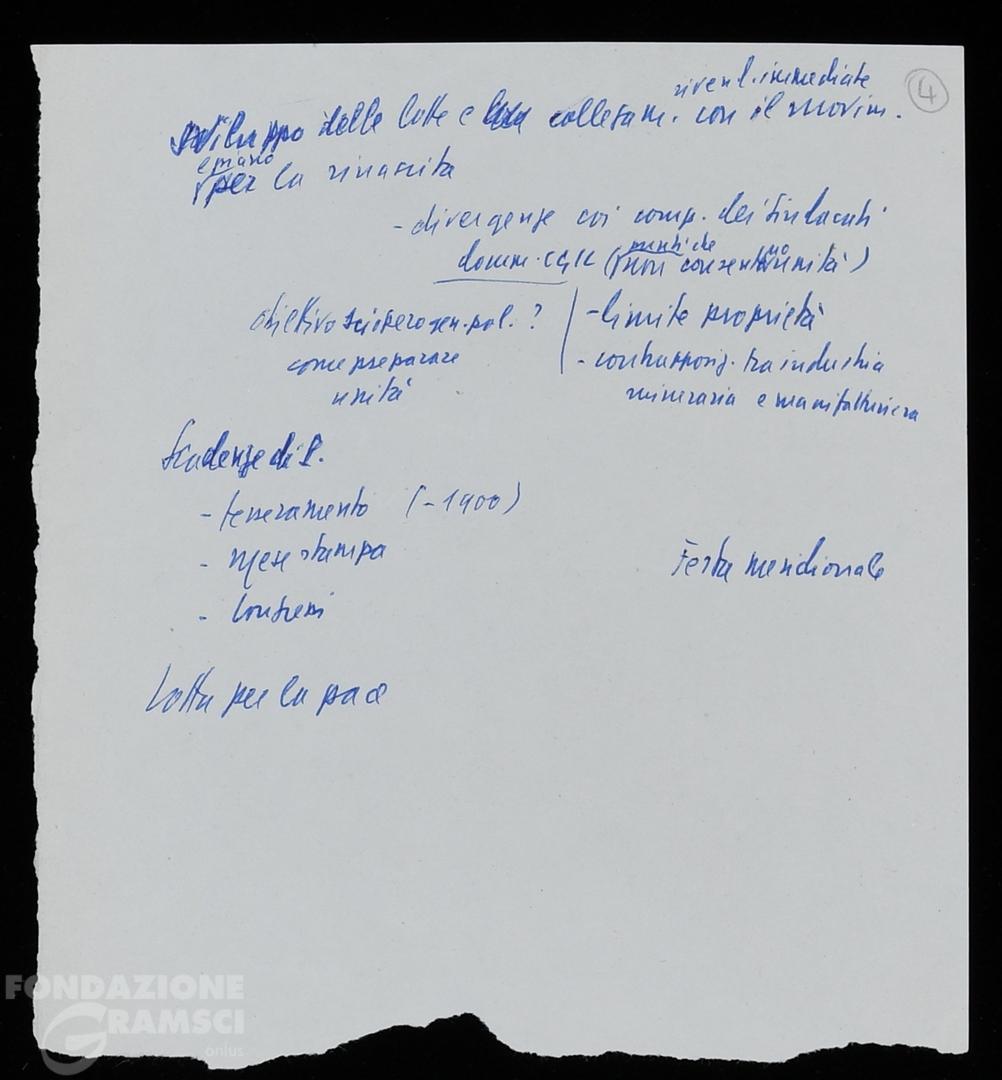 rivend. immediate
4
sviluppo delle lotte e collegam. con il movim.
e piano
per la rinascita
- divergenze coi comp. dei sindacati
docum. CGIL (non consentono unità)
obiettivo sciopero gen. pol. ?
come preparare
unità
- limite proprietà
- contrappos. tra industria
mineraria e manifatturiera
Scadenze di P.
- tesseramento (-1900)
- mese stampa
- congressi
Festa meridionale
Lotta per la pace
FONDAZIONE
GRAMSCI
onlus